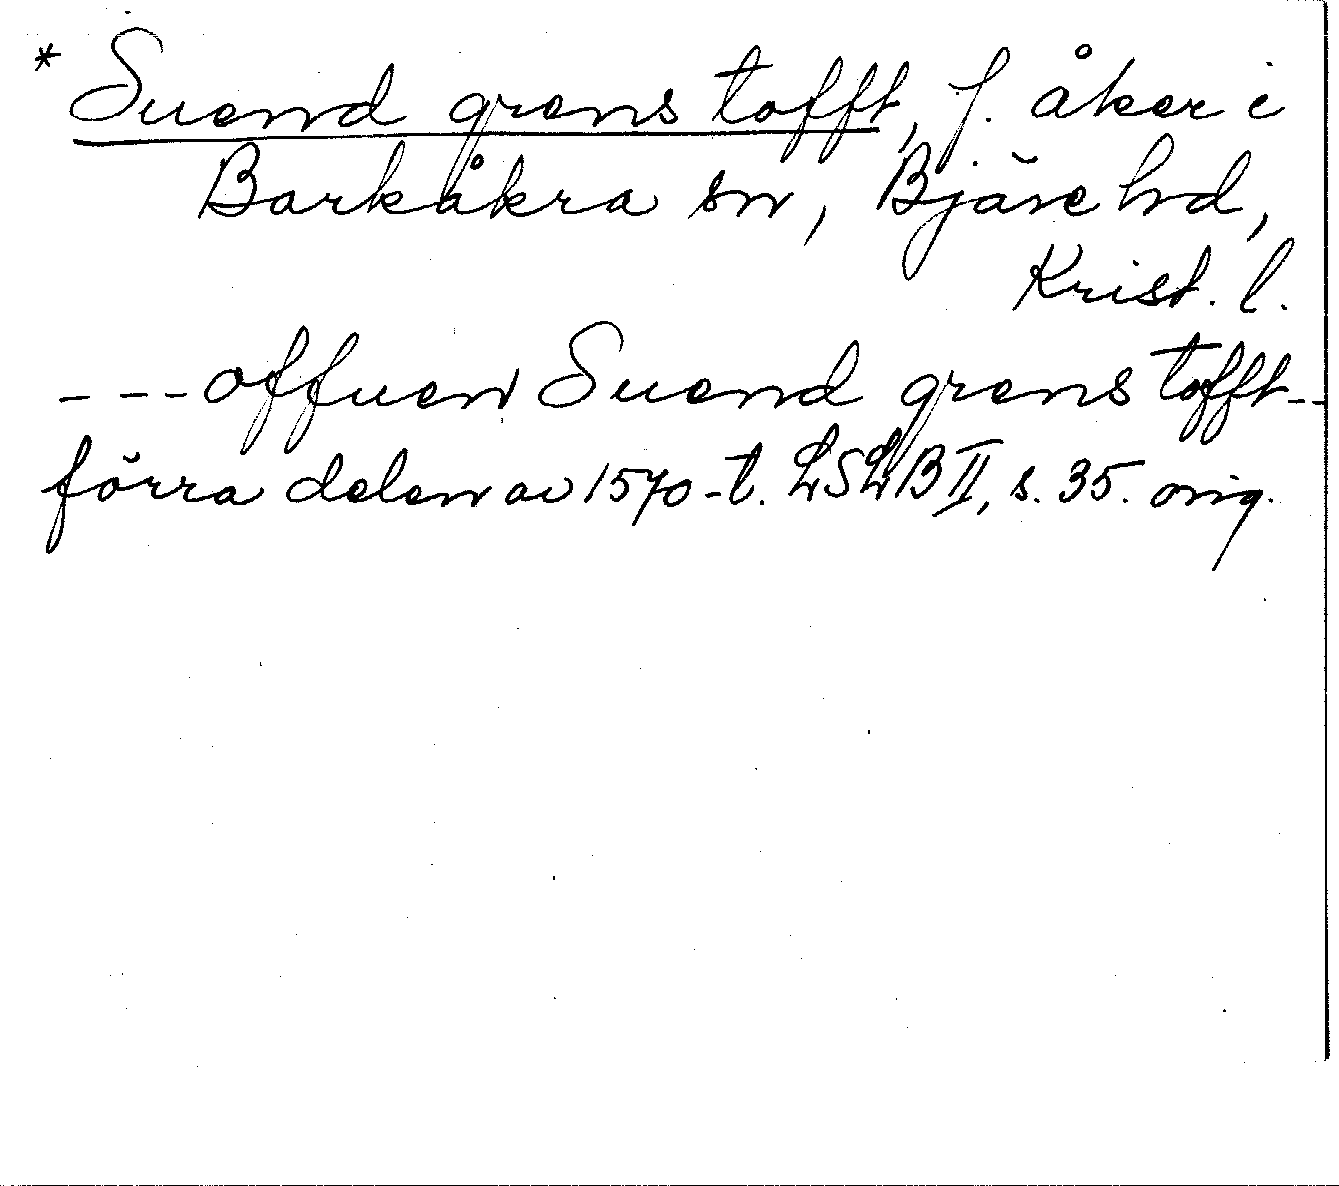 * Suend grens tofft, f. åker i
Barkåkra sn, Bjäre hd,
Krist. l.
--- offuen Suend grens tofft --
förra delen av 1570-t. LSLB II, s. 35. orig.